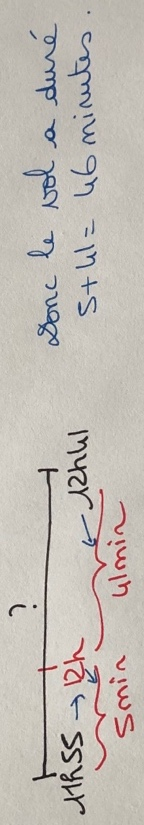 ?
11h55 → 12h ← 12h41
5min 41min
Donc le vol a duré
5+41= 46 minutes.